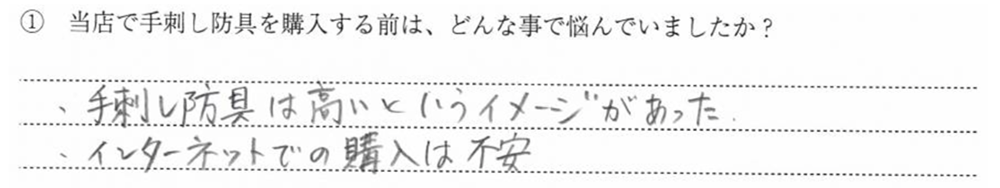 ① 当店で手刺し防具を購入する前は、どんな事で悩んでいましたか？
、手刺し防具は高いというイメージがあった.
、インターネットでの購入は不安